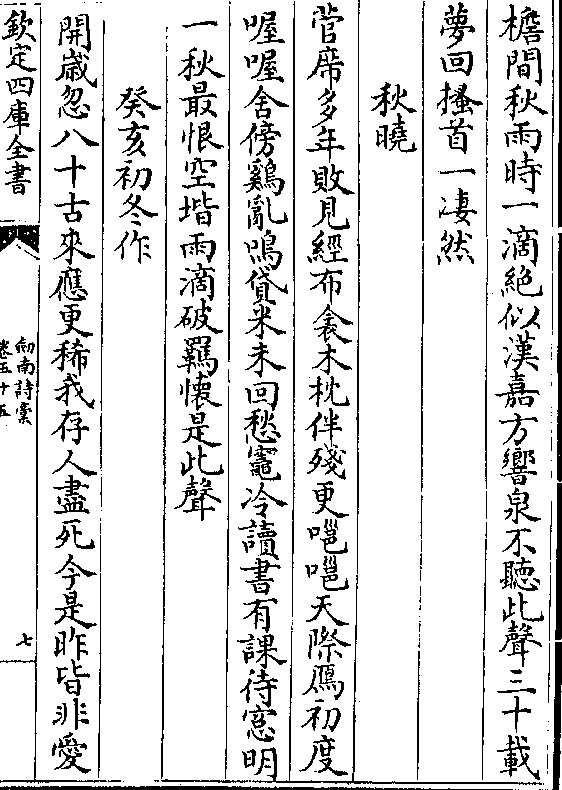 檐間秋雨時一滴絶似漢嘉方響泉不聽此聲三十載
夢回搔首一凄然
秋曉
菅席多年敗見經布衾木枕伴殘更嗈嗈天際鴈初度
喔喔舍傍鷄亂鳴貸米未回愁竈冷讀書有課待窓明
一秋最恨空堦雨滴破羈懷是此聲
癸亥初冬作
開嵗忽八十古來應更稀我存人盡死今是昨皆非愛
欽定四庫全書
劒南詩稾
卷五十五
七